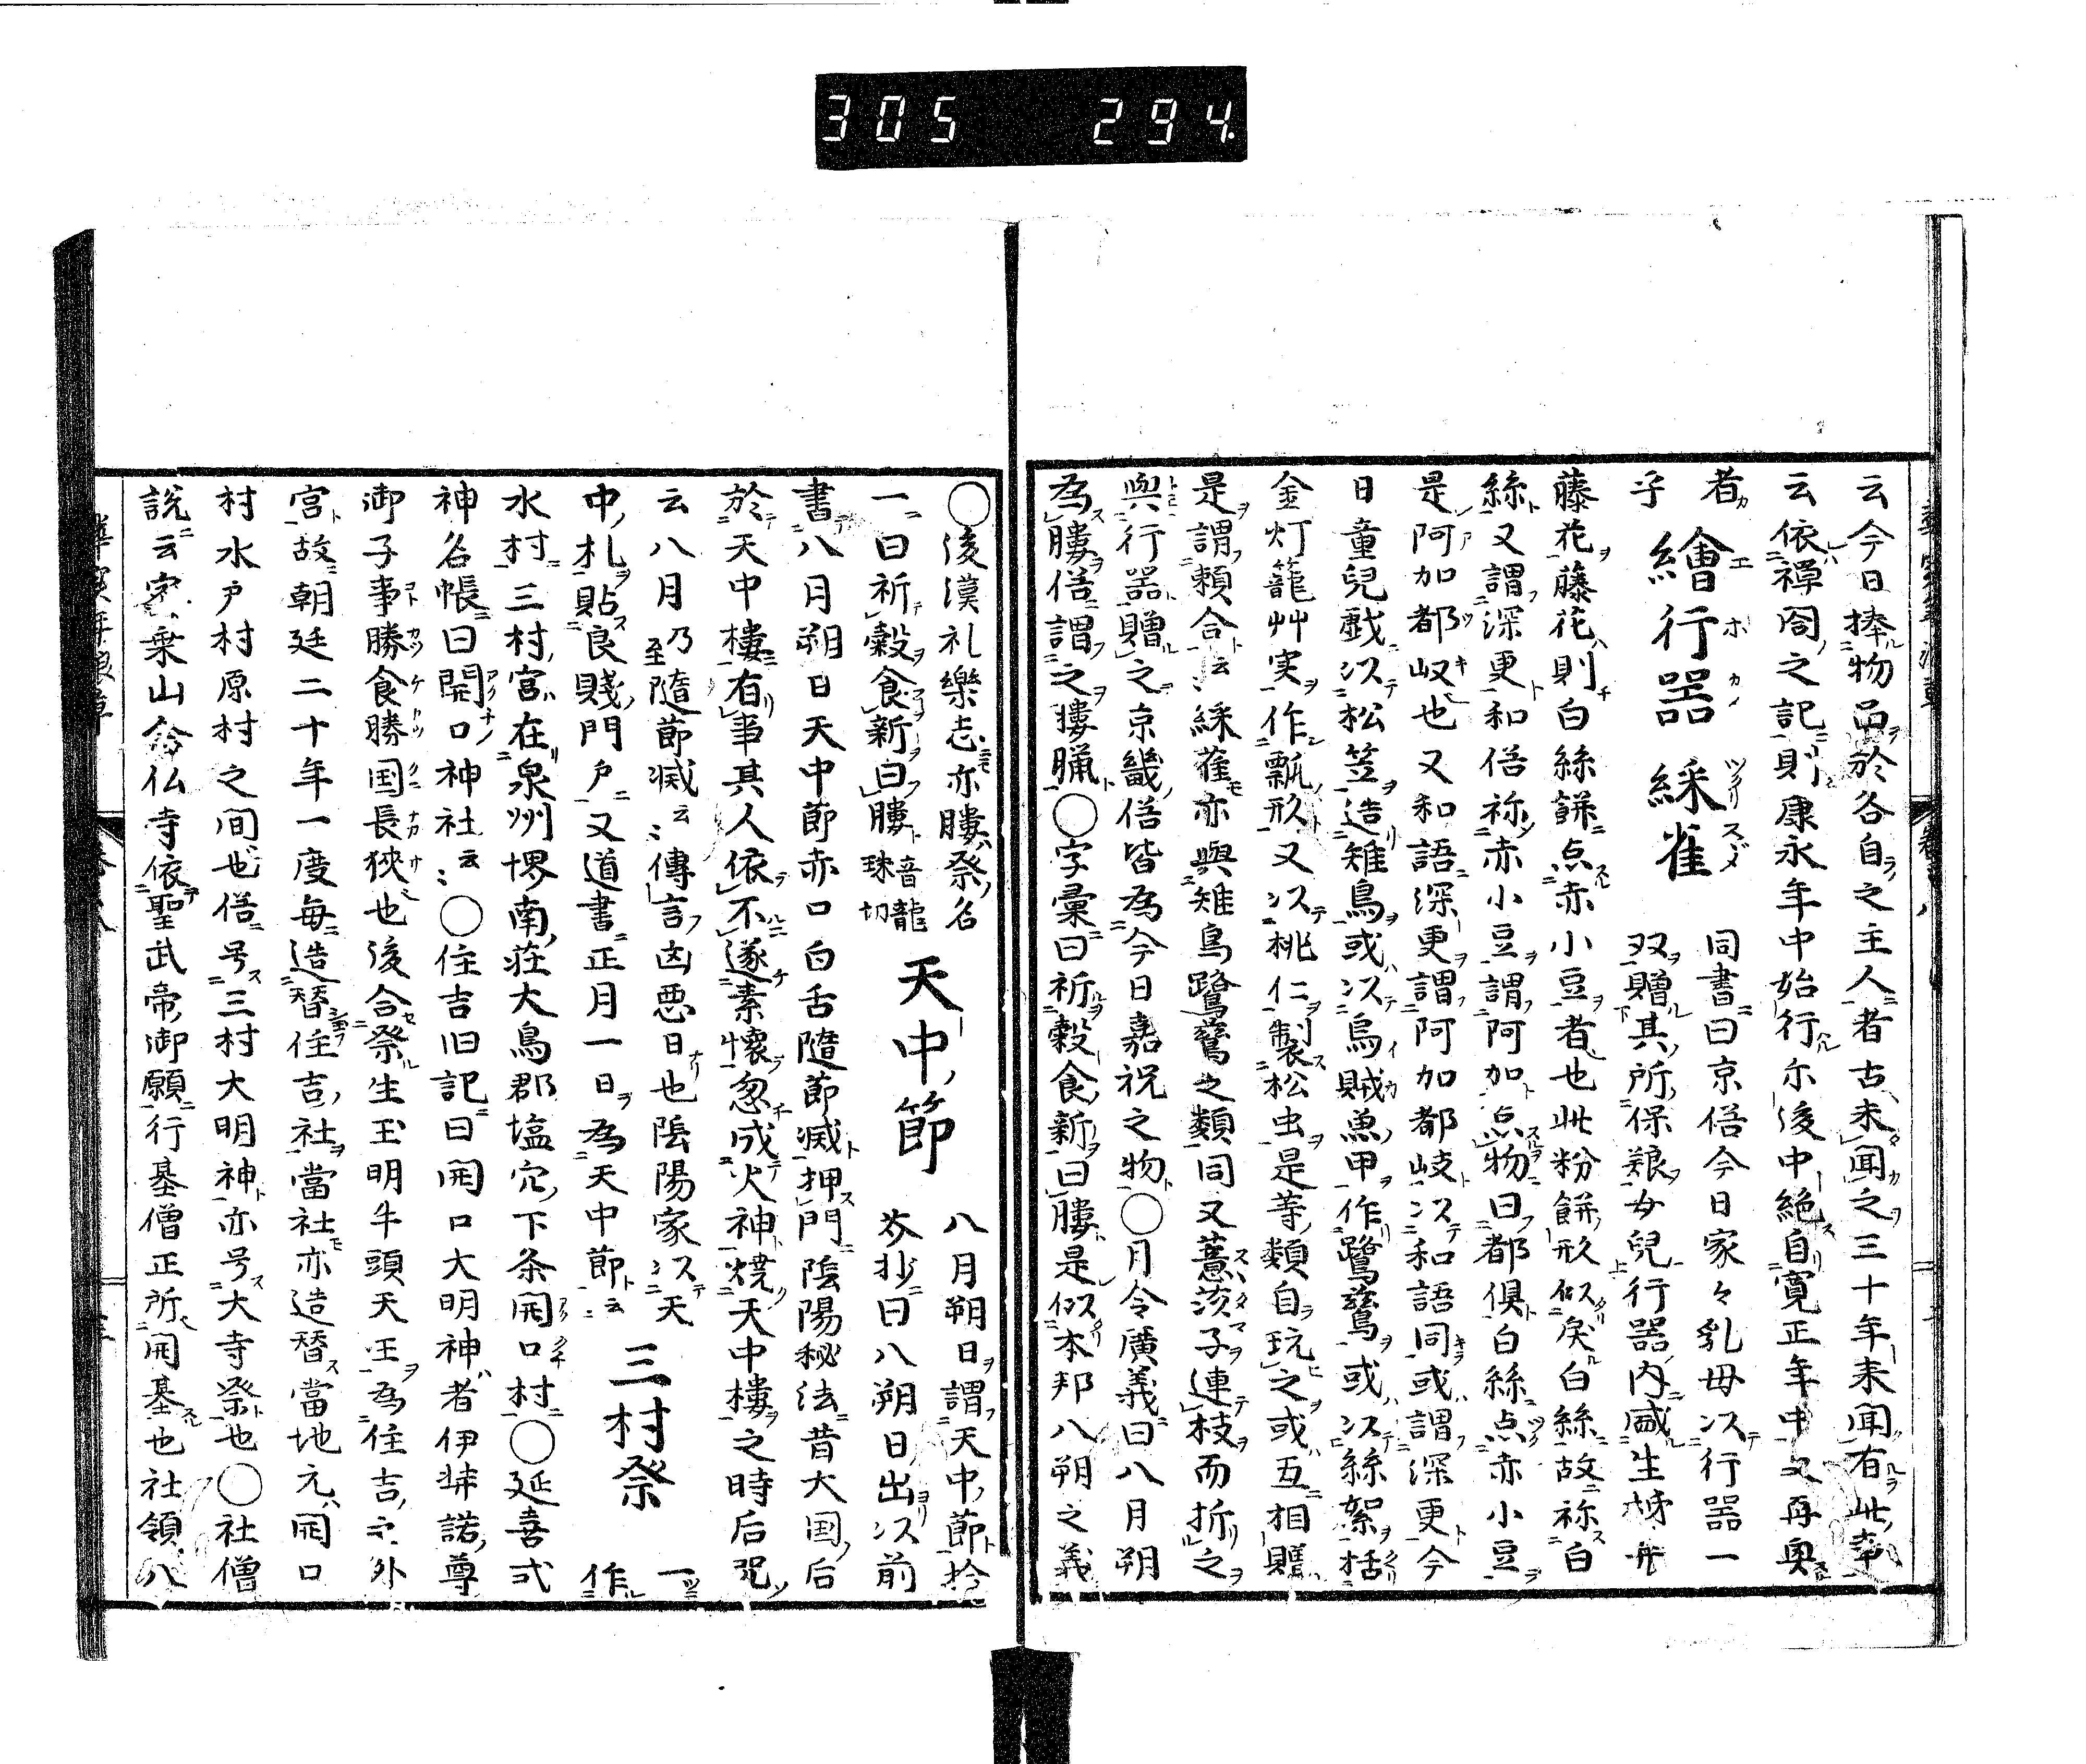 305 294.
云今日捧物品於各自之主人者古未聞之三十年来聞有此
云依禅閤之記則康永年中始行尓後中絶自寛正年中又再興
者
乎
繪行器 綵雀
同書曰京俗今日家々乳母以行器一
双贈其所保粮女児行器内盛生
藤花藤花則白絲餅点赤小豆者也此粉餅形似戻白絲故称白
絲又謂深更和俗称赤小豆謂阿加点物曰都倶白絲点赤小豆
是阿加都岐也又和語深更謂阿加都岐以和語同或謂深更今
日童兒戯以松笠造雉鳥或以烏賊魚甲作鷺鷥或以絲絮括
金灯籠艸実作瓢形又以桃仁製松虫是等類自玩之或互相贈
是謂頼合云綵雀亦與雉鳥鷺鷥之類同又薏苡子連枝而折之
與行器贈之京畿俗皆為今日嘉祝之物○月令廣義曰八月朔
為膢俗謂之膢臘○字彙曰祈穀食新曰膢是似本邦八朔之義
○後漢礼樂志亦膢祭名
一曰祈穀食新曰膢音龍珠切
天中節
八月朔日謂天中節拾
芥抄曰八朔日出以前
書八月朔日天中節赤口白舌隨節滅押門陰陽秘法昔大国后
於天中樓有事其人依不遂素懐忽成火神焼天中樓之時后咒
云八月乃至隨節滅云々傳言凶悪日也陰陽家以天
中札貼良賤門戸又道書正月一日為天中節云々
三村祭
一作
水村三村宮在泉州堺南荘大鳥郡塩穴下条開口村○延喜式
神名帳曰開口神社云々○住吉旧記曰開口大明神者伊弉諾尊
御子事勝食勝国長狹也後合祭生玉明牛頭天王為住吉之外
宮故朝廷二十年一度毎造替住吉社當社亦造替當地元開口
村水戸村原村之間也俗号三村大明神亦号大寺祭也○社僧
説云密乗山念仏寺依聖武帝御願行基僧正所開基也社領八